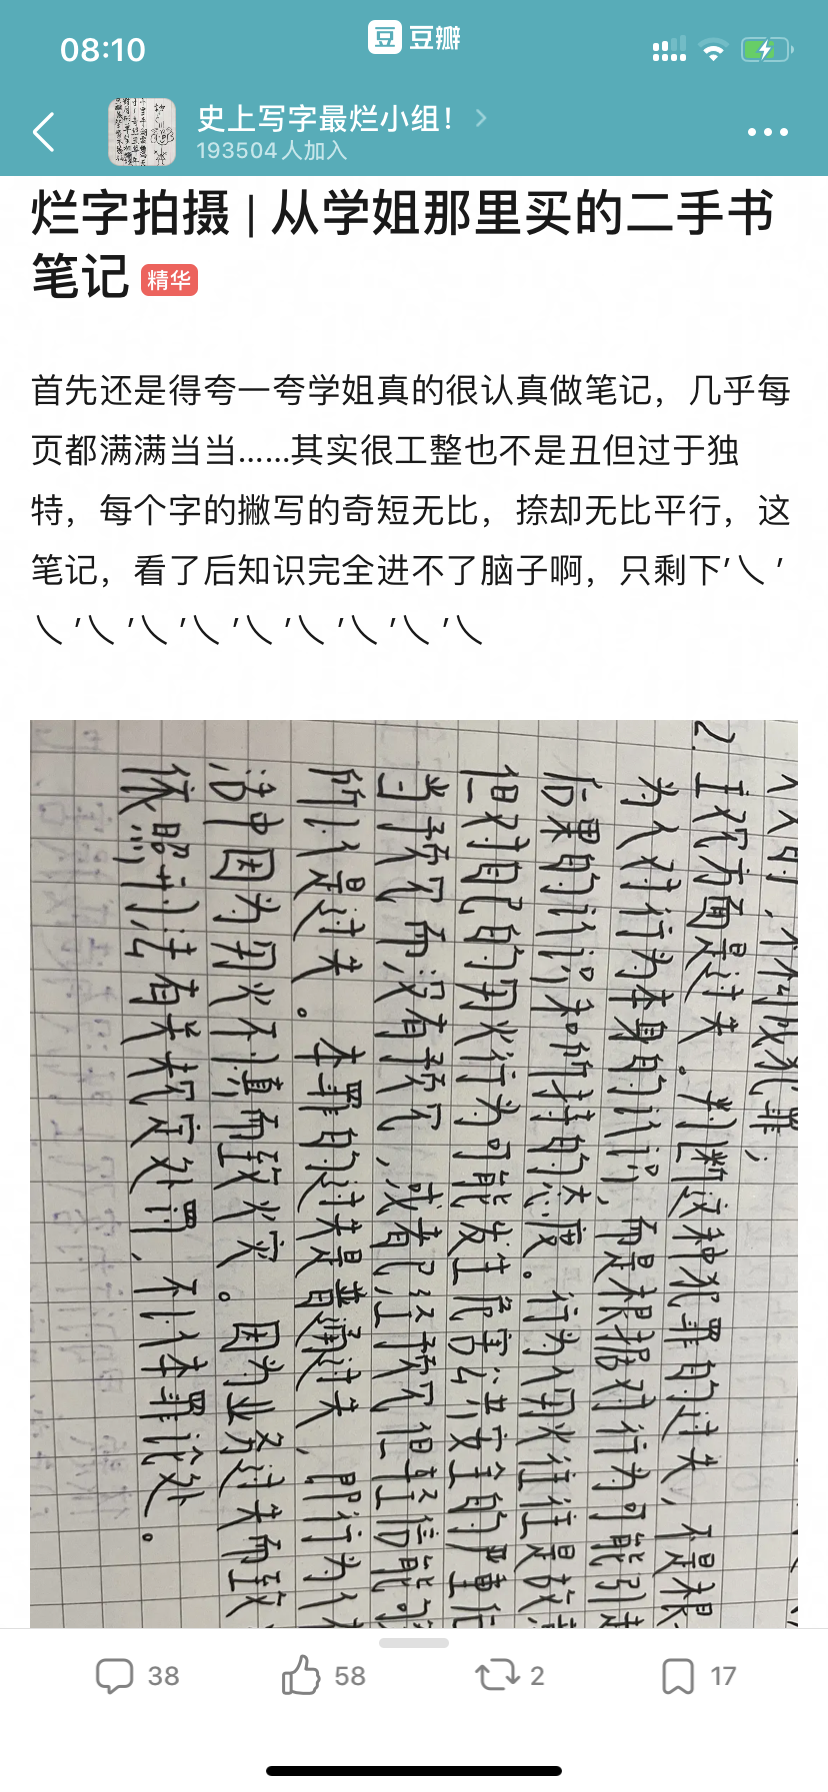 08:10
豆 豆瓣
史上写字最烂小组！
193504人加入
烂字拍摄 | 从学姐那里买的二手书
笔记 精华
首先还是得夸一夸学姐真的很认真做笔记，几乎每
页都满满当当……其实很工整也不是丑但过于独
特，每个字的撇写的奇短无比，捺却无比平行，这
笔记，看了后知识完全进不了脑子啊，只剩下′㇏ ′
㇏ ′㇏ ′㇏ ′㇏ ′㇏ ′㇏ ′㇏ ′㇏ ′㇏
2. 主观方面是过失。判断这种犯罪的过失，不是根
为人对行为本身的认识，而是根据对行为可能引起
后果的认识和所持的态度。行为人用火往往是故意
但对自己的用火行为可能发生危害公共安全的严重后
当预见而没有预见，或者已经预见但轻信能够
所以是过失。本罪的过失是普通过失，即行为人
活中因为用火不慎而致火灾。因为业务过失而致
依照刑法有关规定处罚，不以本罪论处。
38
58
2
17